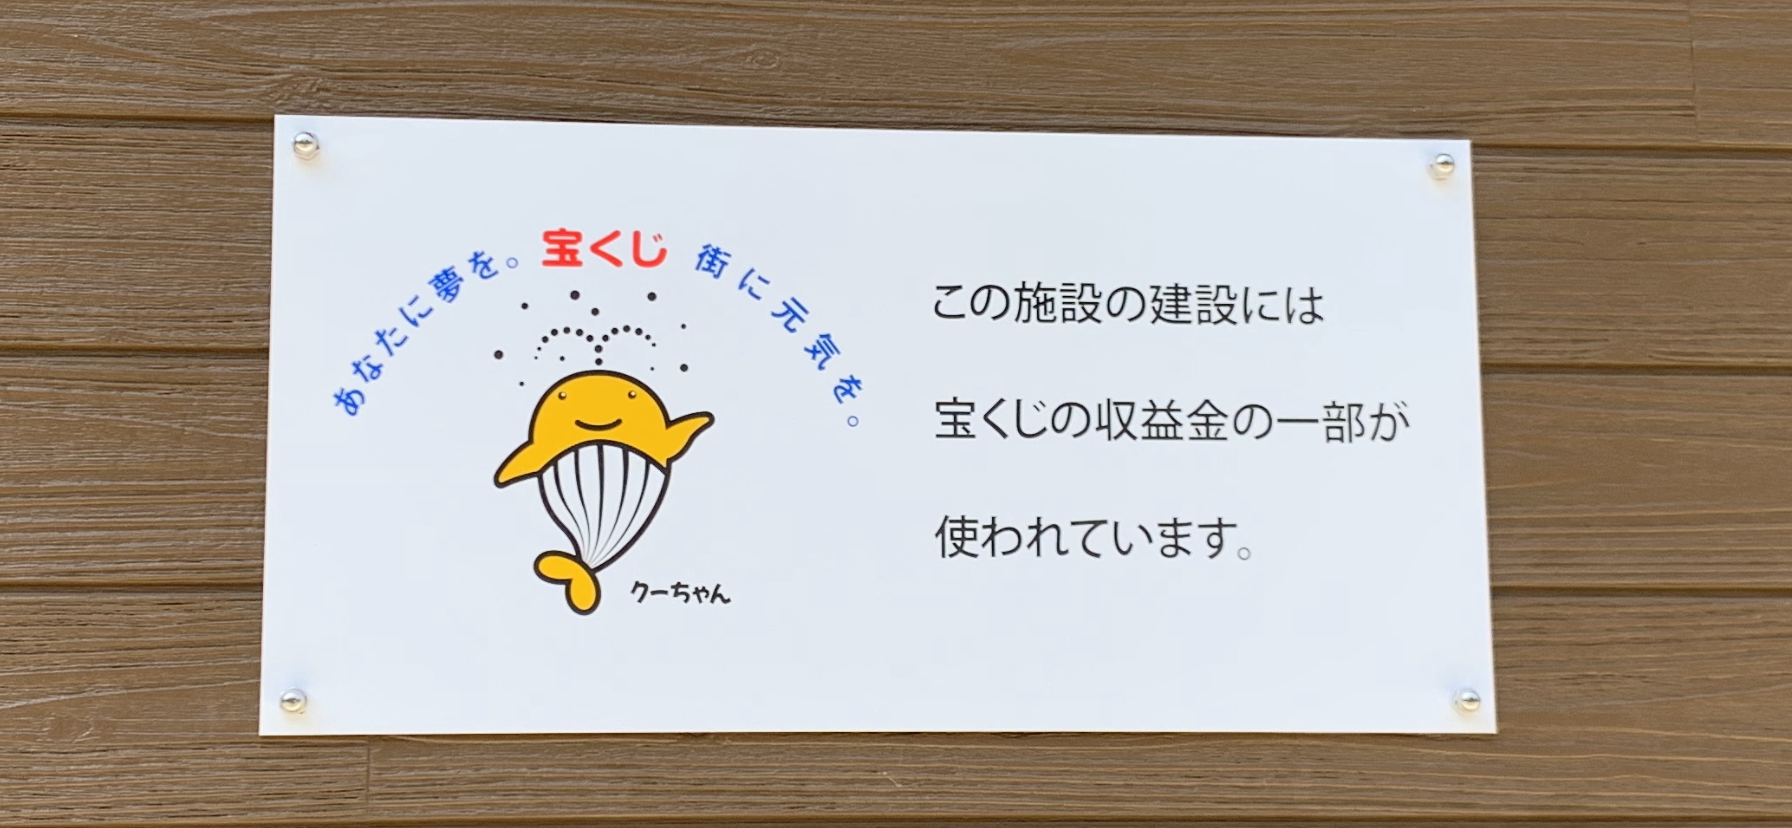 あなたに夢を。宝くじ 街に元気を。
クーちゃん
この施設の建設には
宝くじの収益金の一部が
使われています。